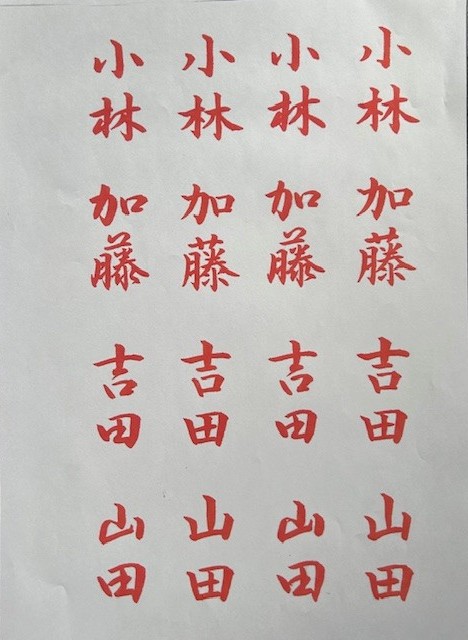 小林 加藤 吉田 山田
小林 加藤 吉田 山田
小林 加藤 吉田 山田
小林 加藤 吉田 山田